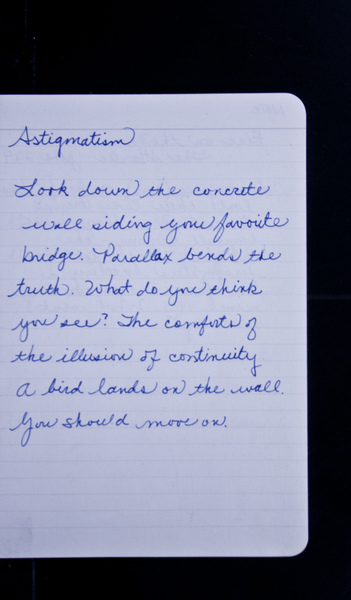 Astigmatism
Look down the concrete
wall siding your favorite
bridge. Parallax bends the
truth. What do you think
you see? The comforts of
the illusion of continuity
A bird lands on the wall.
You should move on.